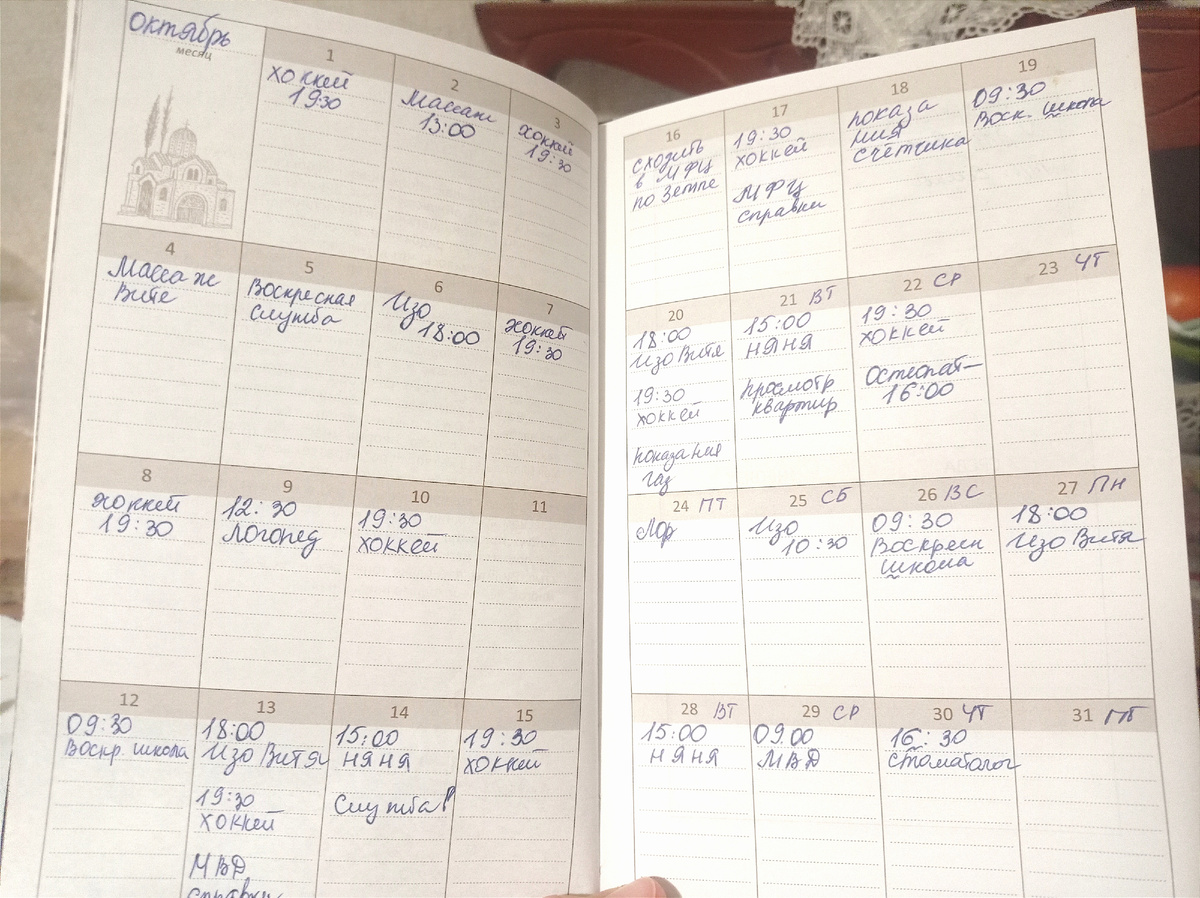 Октябрь
месяц
1
хоккей
19:30
2
Массаж
13:00
3
хоккей
19:30
4
Массаж
Вите
5
Воскресная
служба
6
Изо
18:00
7
хоккей
19:30
8
хоккей
19:30
9
12:30
Логопед
10
19:30
хоккей
11
12
09:30
Воскр. школа
13
18:00
Изо Витя
19:30
хоккей
МВД
справки
14
15:00
няня
Служба!
15
19:30
хоккей
16
сходить
в МФЦ
по земле
17
19:30
хоккей
МФЦ
справки
18
показа
ния
счётчика
19
09:30
Воск. школа
20
18:00
Изо Витя
19:30
хоккей
показания
газ
21 ВТ
15:00
няня
просмотр
квартир
22 СР
19:30
хоккей
Остеопат-
16:00
23 ЧТ
24 ПТ
Лор
25 СБ
Изо
10:30
26 ВС
09:30
Воскресн
школа
27 ПН
18:00
Изо Витя
28 ВТ
15:00
няня
29 СР
09 00
МВД
30 ЧТ
16:30
стоматолог
31 ПТ